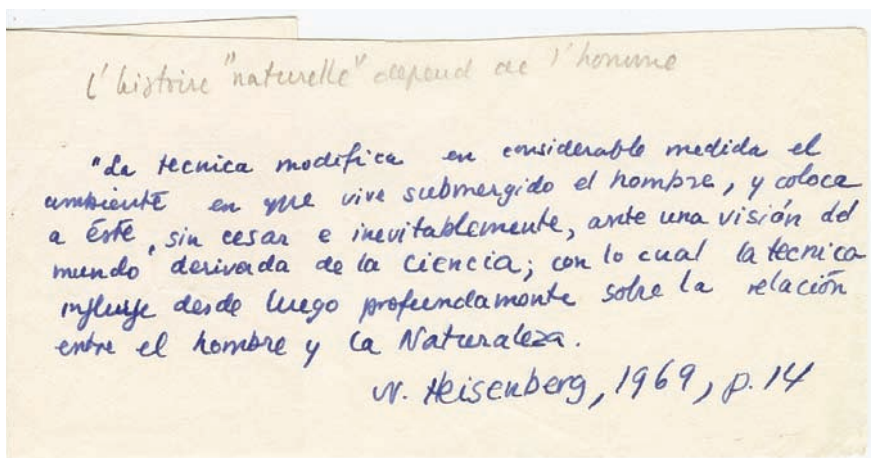 L'histoire "naturelle" depend de l'homme
"La tecnica modifica en considerable medida el
ambiente en que vive submergido el hombre, y coloca
a éste, sin cesar e inevitablemente, ante una visión del
mundo derivada de la Ciencia; con lo cual la tecnica
influye desde luego profundamente sobre la relación
entre el hombre y la Naturaleza.
W. Heisenberg, 1969, p. 14